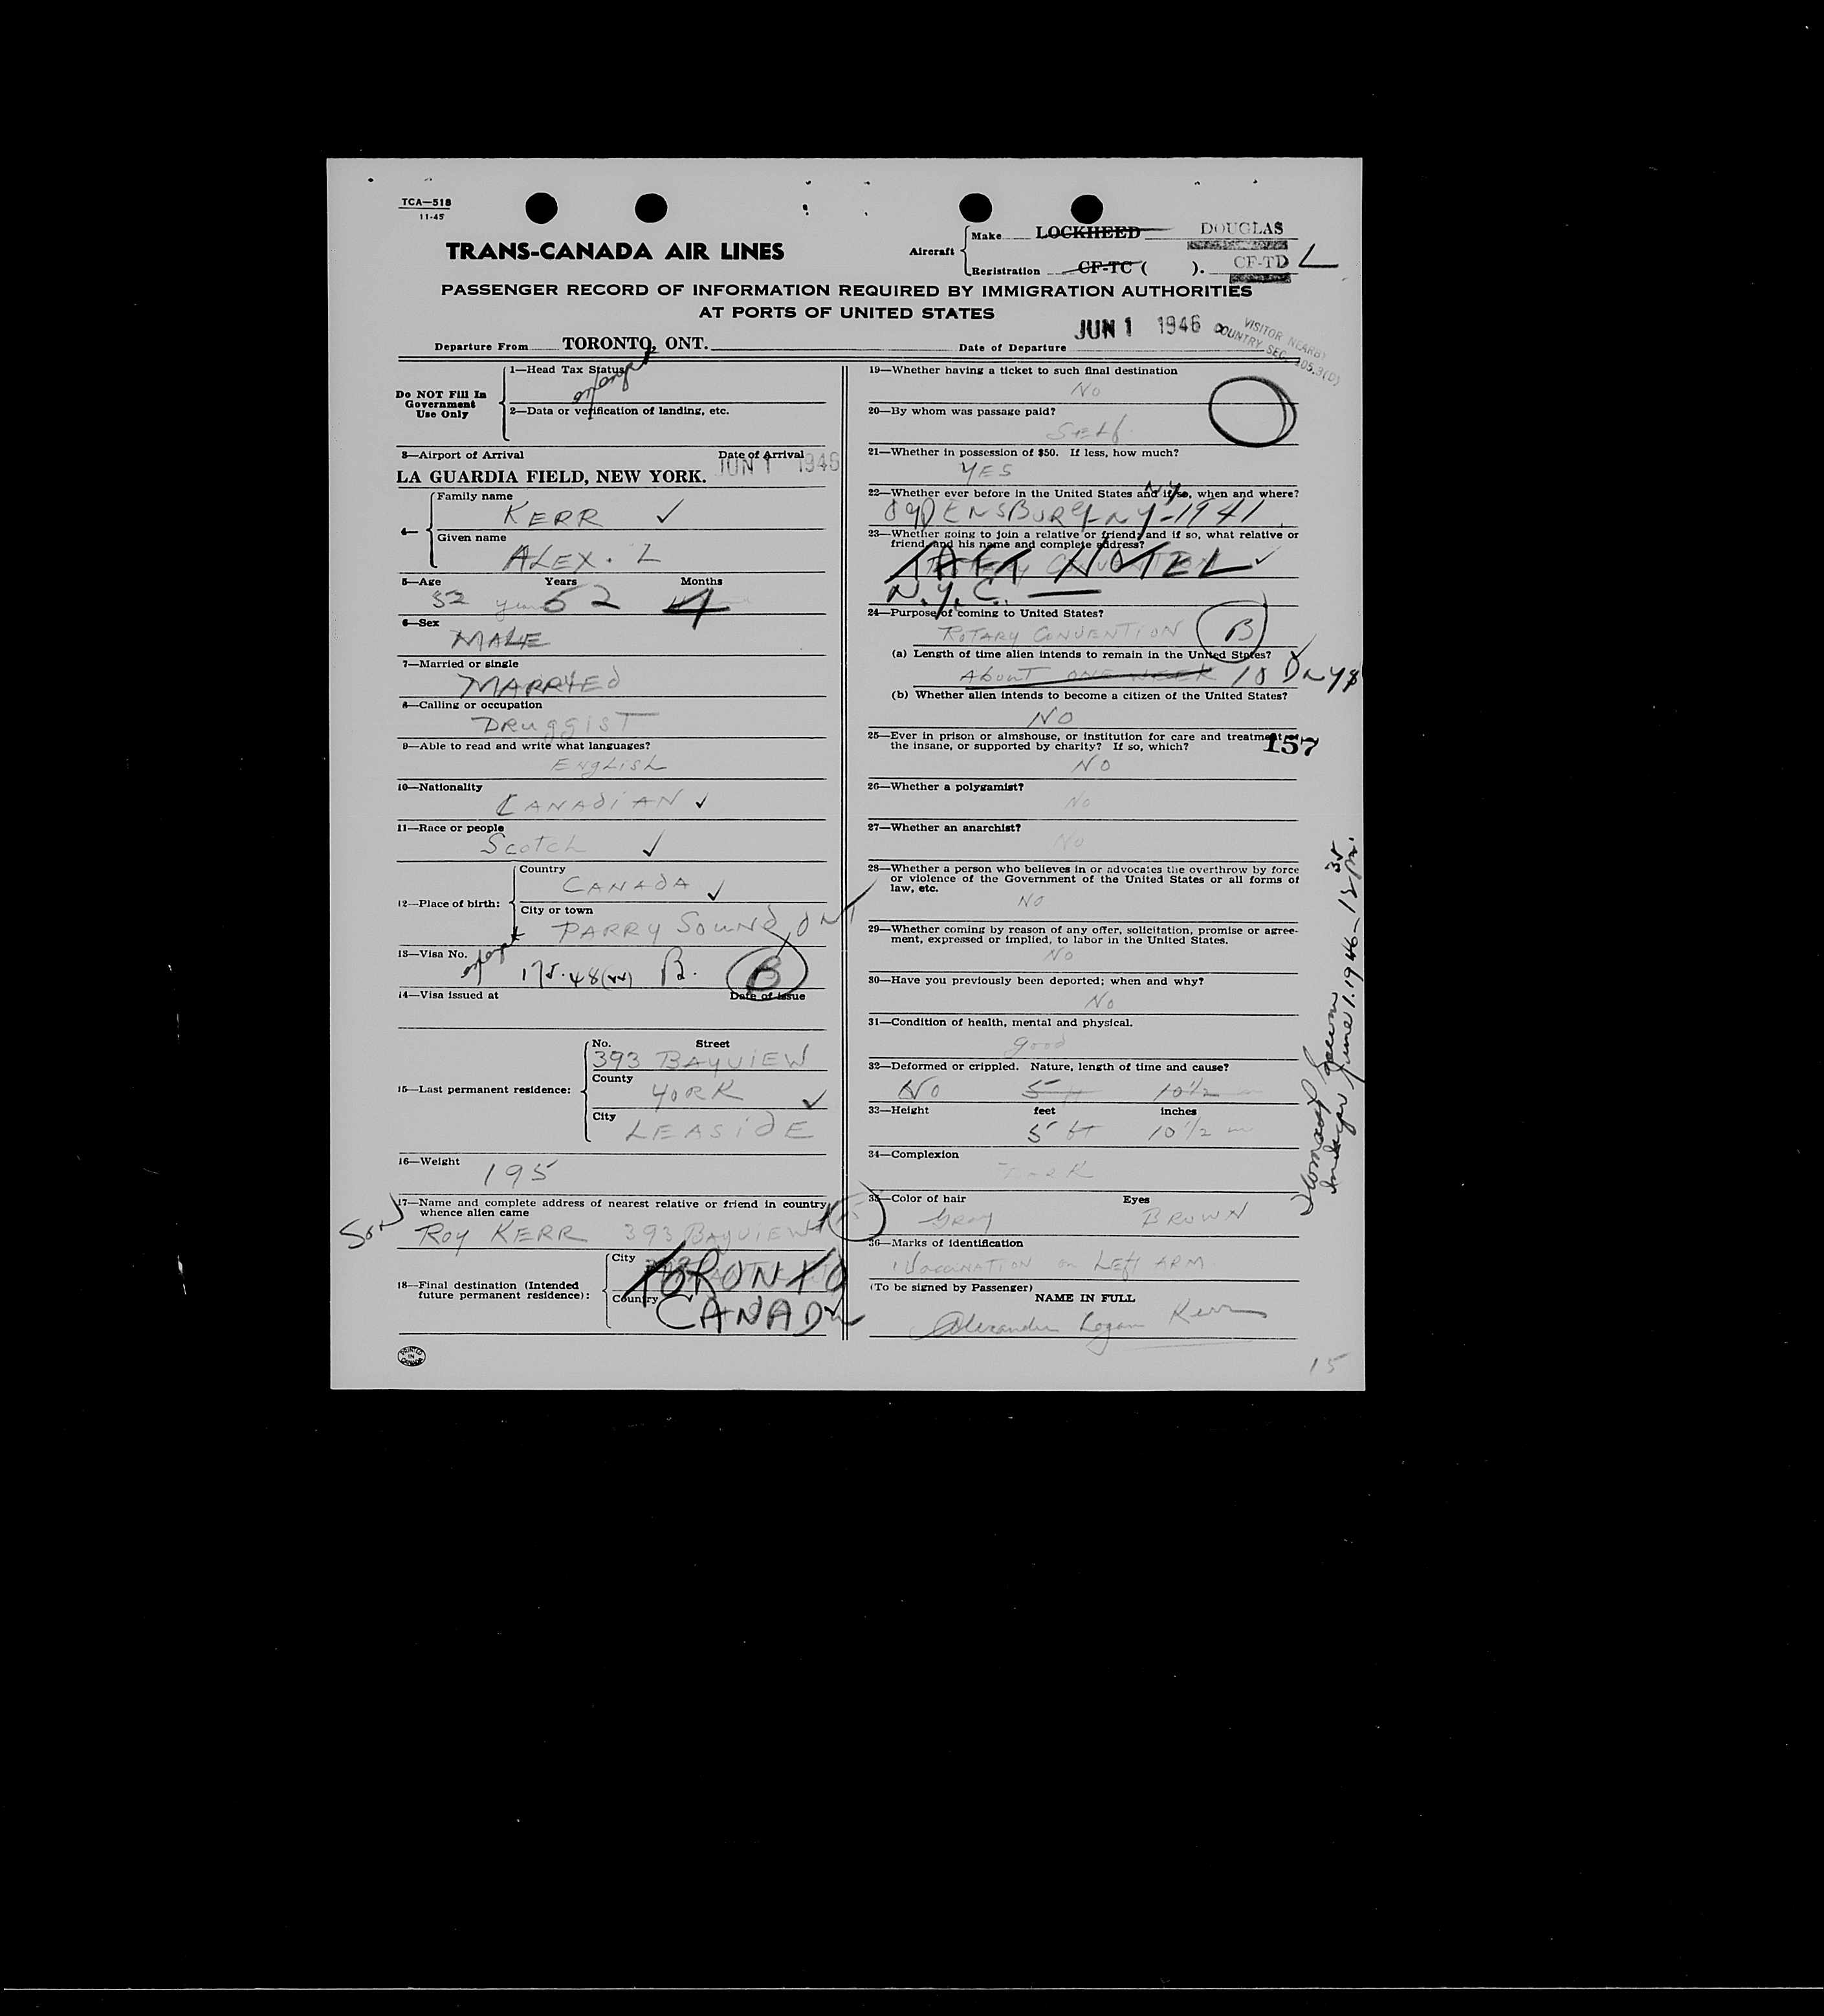 TCA—518
11-45
TRANS-CANADA AIR LINES
Aircraft
Make LOCKHEED DOUGLAS
Registration CF-TC ( ). CF-TD L
PASSENGER RECORD OF INFORMATION REQUIRED BY IMMIGRATION AUTHORITIES
AT PORTS OF UNITED STATES
Departure From TORONTO, ONT.
Date of Departure JUN 1 1946
VISITOR NEARBY
COUNTRY SEC. 105.3(D)
Do NOT Fill In
Government
Use Only
1—Head Tax Status
exempt
2—Data or verification of landing, etc.
3—Airport of Arrival
Date of Arrival
LA GUARDIA FIELD, NEW YORK.
JUN 1 1946
4—
Family name
KERR ✓
Given name
ALEX. L
5—Age Years Months
52 52 4
6—Sex
MALE
7—Married or single
MARRIED
8—Calling or occupation
DRUGGIST
9—Able to read and write what languages?
ENGLISH
10—Nationality
CANADIAN ✓
11—Race or people
Scotch ✓
12—Place of birth:
Country
CANADA ✓
City or town
PARRY SOUND, ONT
13—Visa No.
exempt
B. B
14—Visa issued at
Date of issue
15—Last permanent residence:
No. Street
393 BAYVIEW
County
YORK ✓
City
LEASIDE
16—Weight
195
17—Name and complete address of nearest relative or friend in country
whence alien came
Son ROY KERR 393 BAYVIEW
18—Final destination (Intended
future permanent residence):
City
TORONTO
Country
CANADA
PRINTED
IN
CANADA
19—Whether having a ticket to such final destination
No
20—By whom was passage paid?
SELF
21—Whether in possession of $50. If less, how much?
YES
22—Whether ever before in the United States and if so, when and where?
N.Y.
OGDENSBURG-NY-1941
23—Whether going to join a relative or friend; and if so, what relative or
friend and his name and complete address?
TAFT HOTEL ✓
N.Y.C.
24—Purpose of coming to United States?
ROTARY CONVENTION B
(a) Length of time alien intends to remain in the United States?
ABOUT ONE WEEK 10 DAYS
(b) Whether alien intends to become a citizen of the United States?
NO
25—Ever in prison or almshouse, or institution for care and treatment of
the insane, or supported by charity? If so, which?
157
NO
26—Whether a polygamist?
No
27—Whether an anarchist?
No
28—Whether a person who believes in or advocates the overthrow by force
or violence of the Government of the United States or all forms of
law, etc.
NO
29—Whether coming by reason of any offer, solicitation, promise or agree-
ment, expressed or implied, to labor in the United States.
NO
30—Have you previously been deported; when and why?
No
31—Condition of health, mental and physical.
good
32—Deformed or crippled. Nature, length of time and cause?
No 5 10 1/2
33—Height feet inches
5 ft 10 1/2 in
34—Complexion
35—Color of hair Eyes
Gray BROWN
36—Marks of identification
VacciNATION on Left ARM
(To be signed by Passenger)
NAME IN FULL
Alexander Logan Kerr
June 1.1946-12 35 PM.
15